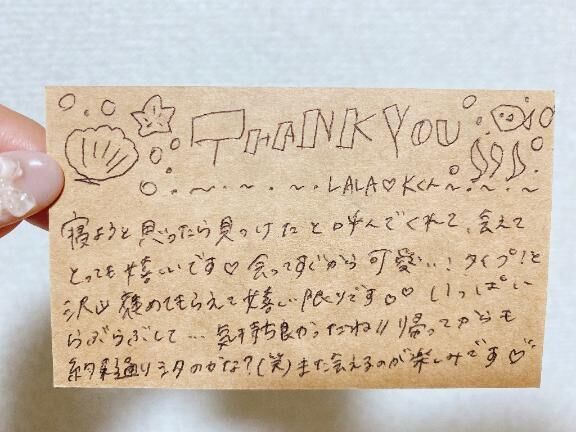 THANK YOU
LALA♡Kくん
寝ようと思ったら見つけたと呼んでくれて、会えて
とっても嬉しいです♡会ってすぐから可愛い…!タイプ!と
沢山褒めてもらえて嬉しい限りです♡♡いっぱい
らぶらぶして…気持ち良かったね!!帰ってからも
約束通りシタのかな?(笑)また会えるのが楽しみです♡